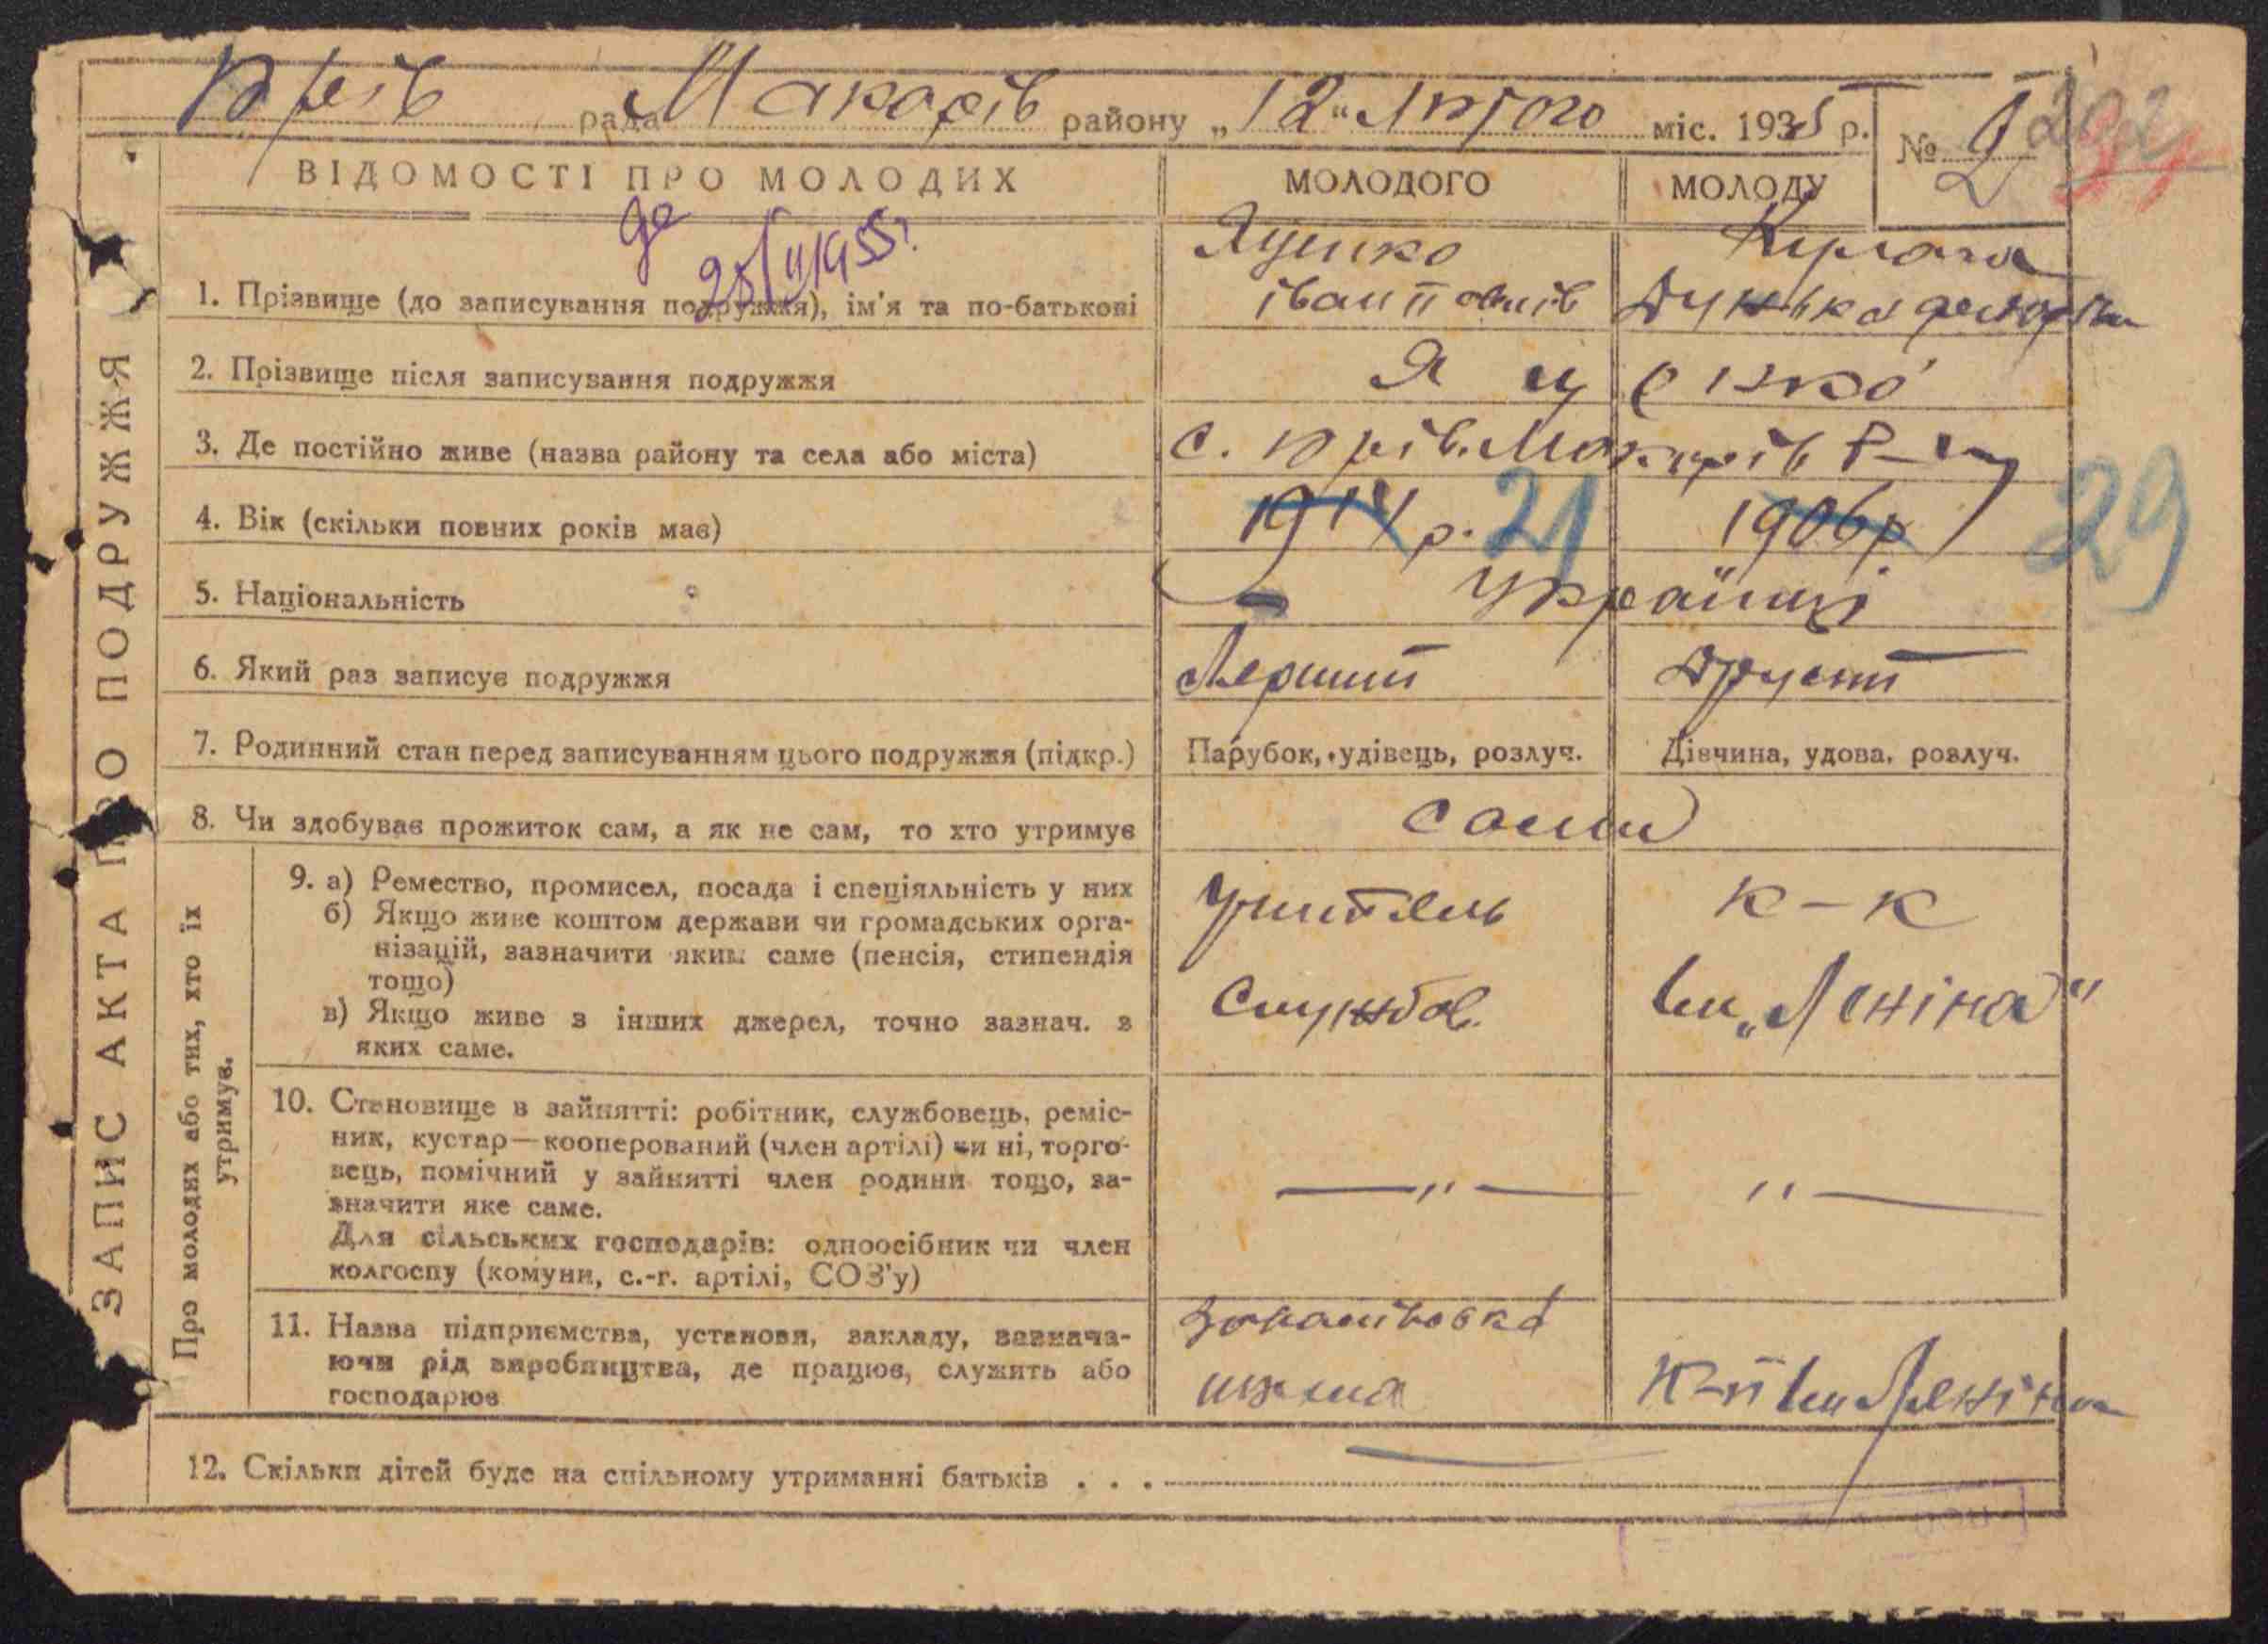 рада Макарів району „12" Лютого міс. 1935 р.
№ 2
ВІДОМОСТІ ПРО МОЛОДИХ
МОЛОДОГО
МОЛОДУ
1. Прізвище (до записування подружжя), ім'я та по-батькові
Яценко
Іван
Дунька Федорівн
2. Прізвище після записування подружжя
Яценко
3. Де постійно живе (назва району та села або міста)
с. Макарів Р-ну
4. Вік (скільки повних років має)
1914 р. 21
1906 р 29
5. Національність
Українці
6. Який раз записує подружжя
Перший
Другий
7. Родинний стан перед записуванням цього подружжя (підкр.)
Парубок, удівець, розлуч.
Дівчина, удова, розлуч.
8. Чи здобуває прожиток сам, а як не сам, то хто утримує
сами
9. а) Ремество, промисел, посада і спеціяльність у них
б) Якщо живе коштом держави чи громадських орга-
нізацій, зазначити яким саме (пенсія, стипендія
тощо)
в) Якщо живе з інших джерел, точно зазнач. з
яких саме.
Учитель
Службов.
к-к
Ім „Леніна"
10. Становище в зайнятті: робітник, службовець, реміс-
ник, кустар—кооперований (член артілі) чи ні, торго-
вець, помічний у зайнятті член родини тощо, за-
значити яке саме.
Для сільських господарів: одноосібник чи член
колгоспу (комуни, с.-г. артілі, СОЗ'у)
— „ —
„ —
11. Назва підприємства, установи, закладу, зазнача-
ючи рід виробництва, де працює, служить або
господарює
школа
Ім Леніна
12. Скільки дітей буде на спільному утриманні батьків . . .
—
ЗАПИС АКТА ПРО ПОДРУЖЖЯ
Про молодих або тих, хто їх
утримує.